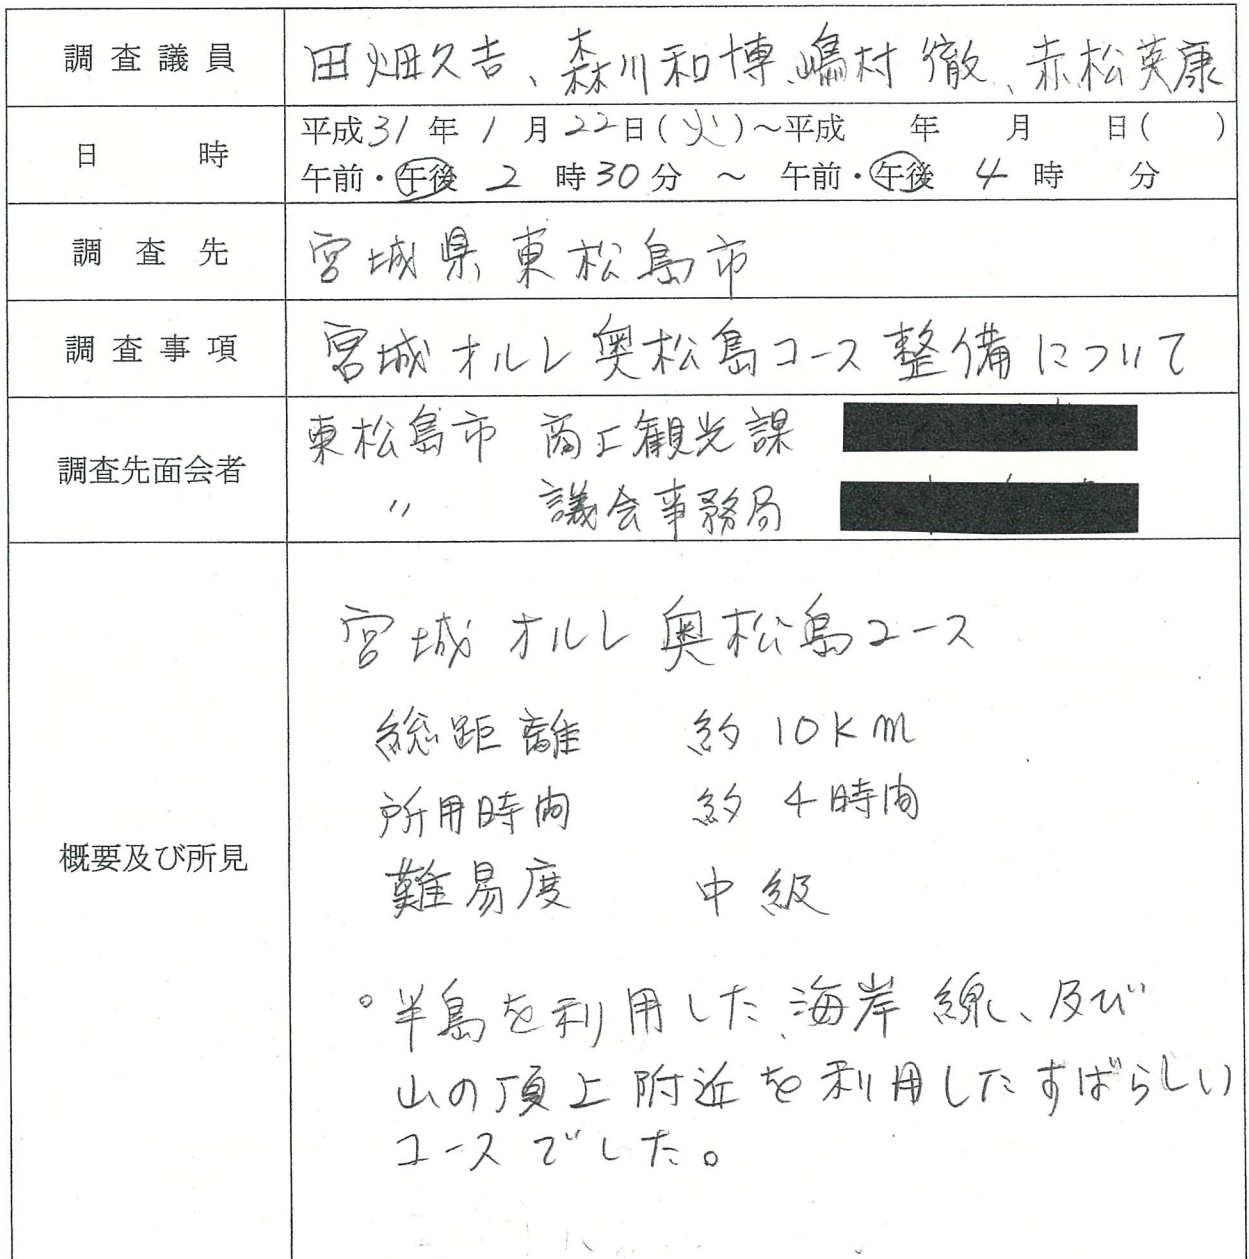 調査議員 田畑久吉、森川和博、嶋村徹、赤松英康
日時 平成31年1月22日(火)～平成 年 月 日( )
午前・午後 2時30分 ～ 午前・午後 4時 分
調査先 宮城県東松島市
調査事項 宮城オルレ奥松島コース整備について
調査先面会者 東松島市 商工観光課
〃 議会事務局
概要及び所見
宮城オルレ奥松島コース
総距離 約10km
所用時間 約4時間
難易度 中級
。半島を利用した海岸線、及び
山の頂上附近を利用したすばらしい
コースでした。